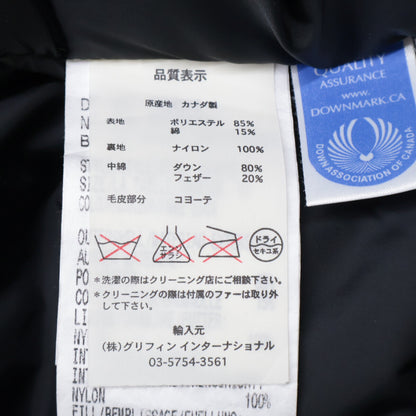 品質表示
原産地 カナダ製
表地 ポリエステル 85%
綿 15%
裏地 ナイロン 100%
中綿 ダウン 80%
フェザー 20%
毛皮部分 コヨーテ
エンソサラシ
ドライ
セキユ系
*洗濯の際はクリーニング店にご相談下さい。
*クリーニングの際は付属のファーは取り外
して下さい。
輸入元
(株)グリフィン インターナショナル
03-5754-3561
100%
NYLON
FILL/REMPLISSAGE/FUELLUNG
QUALITY
ASSURANCE
WWW.
DOWNMARK.CA
DOWN ASSOCIATION OF CANADA